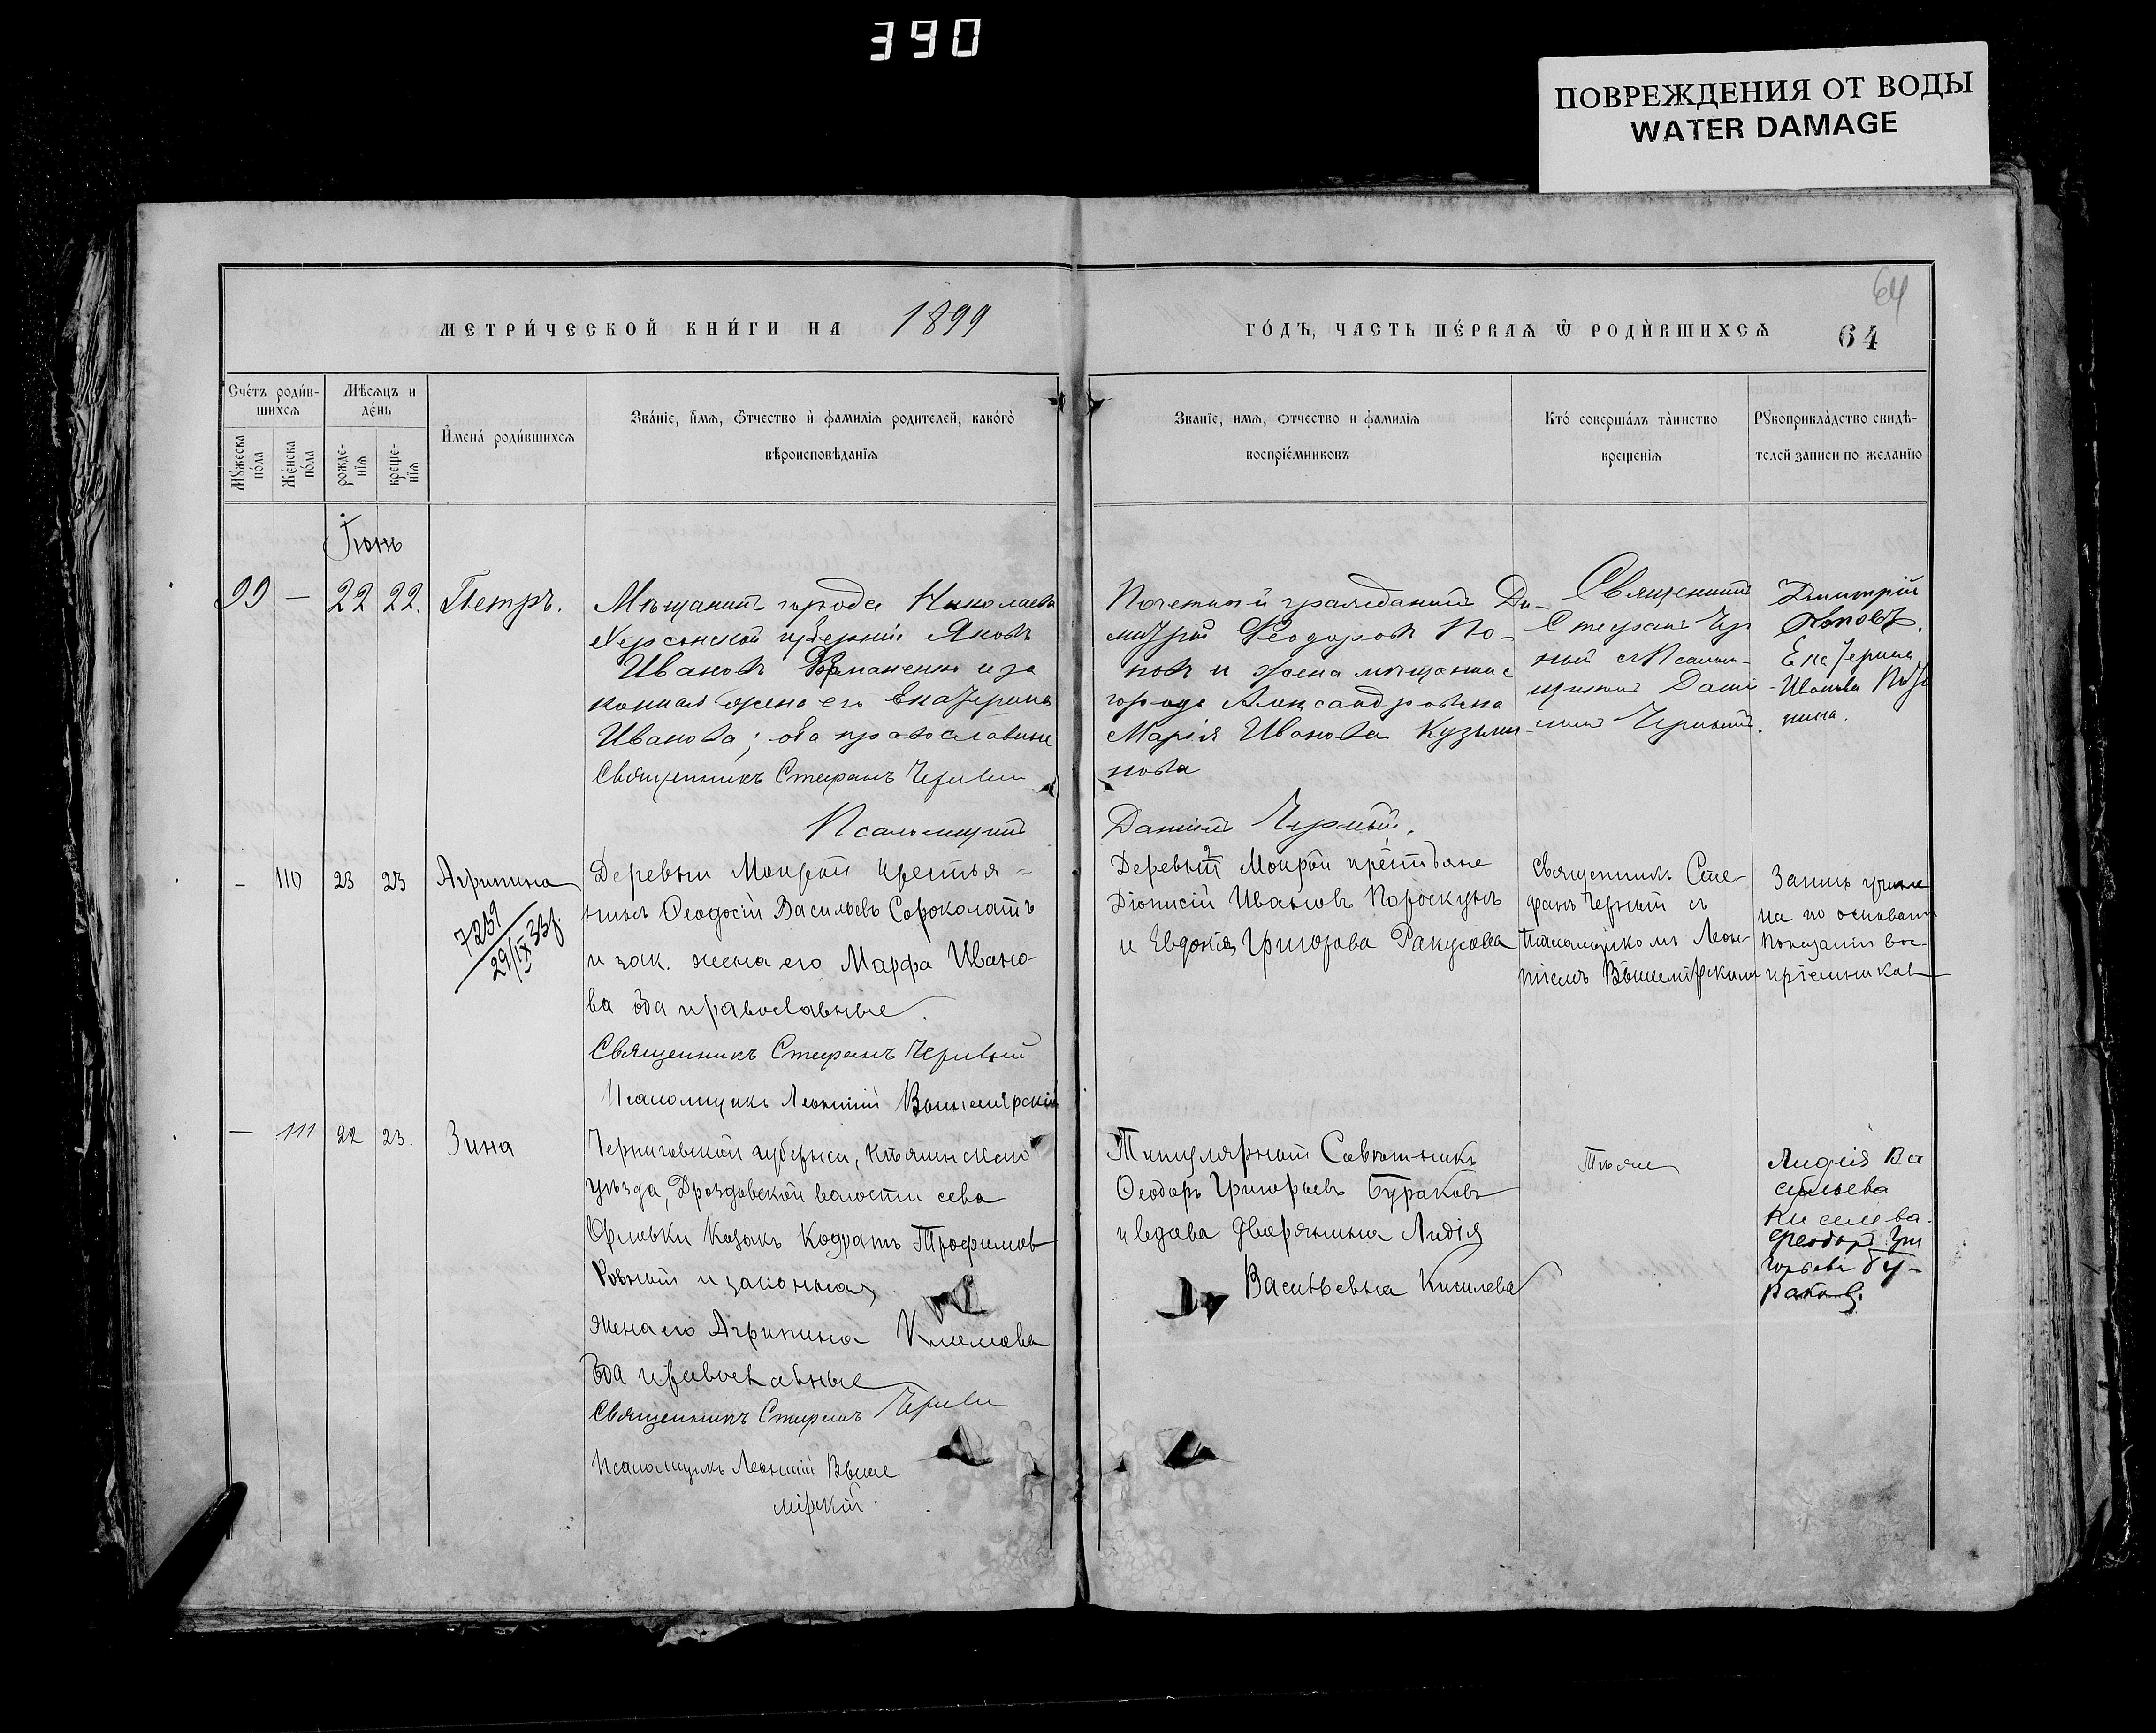 390
ПОВРЕЖДЕНИЯ ОТ ВОДЫ
WATER DAMAGE
64
МЕТРИ́ЧЕСКОЙ КНИ́ГИ НА 1899
ГО́ДЪ, ЧАСТЬ ПЕ́РВАѦ Ѿ РОДИ́ВШИХСѦ
64
Сче́тъ роди́в-
шихсѧ
Мѣсѧцъ и
де́нь
Мꙋ́жеска по́ла
Же́нска по́ла
рожде-
нїѧ
креще-
нїѧ
И҆мена̀ роди́вшихсѧ
Зва́нїе, и҆́мѧ, ѻ҆́тчество и҆ фамилїѧ родителей, како́гѡ
вѣроисповѣ́данїѧ
Званїе, имѧ, ѻтчество и фамилїѧ
воспрїе́мниковъ
Кто́ соверша́лъ та́инство
креще́нїѧ
Рꙋкоприкла́дство свидѣ-
телей записи по желанїю
Іюнь
99 — 22 22. Петръ.
Мѣщанинъ города Николаева
Херсонской губерніи Яковъ
Ивановъ Романенко и за
конная жена его Екатерина
Иванова; оба православные
Священникъ Стефанъ Черный
Псаломщикъ
Почетный гражданинъ Ди-
митрій Феодоровъ По-
повъ и жена мѣщанина
города Александровска
Марія Иванова Кузьми
нова
Даніилъ Черный.
Священникъ
Стефанъ Чер
ный съ Псалом-
щикомъ Дані
иломъ Чернымъ.
Дмитрій
Поповъ.
Екатерина
Иванова
нина.
— 110 23 23 Агрипина
7239
29/IX 33г.
Деревни Мокрой крестья=
нинъ Ѳеодосій Васильевъ Сороколатъ
и зак. жена его Марфа Ивано-
ва оба православные.
Священникъ Стефанъ Черный
Псаломщикъ Леонтій Вышемірскій
Деревни Мокрой крестьяне
Діонисій Ивановъ Пороскунъ
и Евдокія Григорова Ракусова
Священникъ Сте-
фанъ Черный съ
Псаломщикомъ Леон-
тіемъ Вышемірскимъ
Запись учине
на по основани
показанія вос-
пріемниковъ
— 111 22 23. Зина
Черниговской губерніи, Нѣжинскаго
уѣзда, Дроздовской волости села
Орловки Козакъ Кодратъ Трофимовъ
Ровный и законная
жена его Агрипина Климова
оба православные
Священникъ Стефанъ Черный
Псаломщикъ Леонтій Выше
мірскій.
Титулярный Совѣтникъ
Ѳеодоръ Григорьевъ Бураковъ
и вдова дворянина Лидія
Васильевна Киселева
Тѣже
Лидія Ва
сильева
Киселева.
Феодоръ Гри
горьевъ Бу-
раковъ.